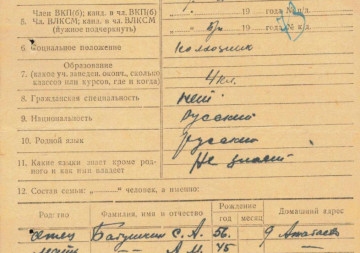 Член ВКП(б); канд. в чл. ВКП(б) 19 года №п/б.
5. Чл. ВЛКСМ; канд. в чл. ВЛКСМ
(нужное подчеркнуть) б/п 19 года № к/б.
6. Социальное положение колхозник
Образование
7. (какое уч. заведен. оконч., сколько 4 кл.
классов или курсов, где и когда)
8. Гражданская специальность нет
9. Национальность Русский
10. Родной язык русский
11. Какие языки знает кроме род-
ного и как ими владеет Не знает
12. Состав семьи: „ “ человек, а именно:
Родство Фамилия, имя и отчество Рождение Домашний адрес
год месяц
отец С. А. 56. д
мать — А. М. 45